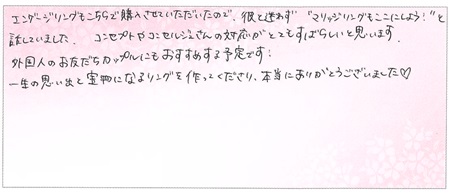 エンゲージリングもこちらで購入させていただいたので、彼と迷わず "マリッジリングもここにしよう!" と
話していました。 コンセプトやコンセルジュさんの対応がとてもすばらしいと思います。
外国人のお友だちカップルにもおすすめする予定です!
一生の思い出と宝物になるリングを作ってくださり、本当にありがとうございました♡